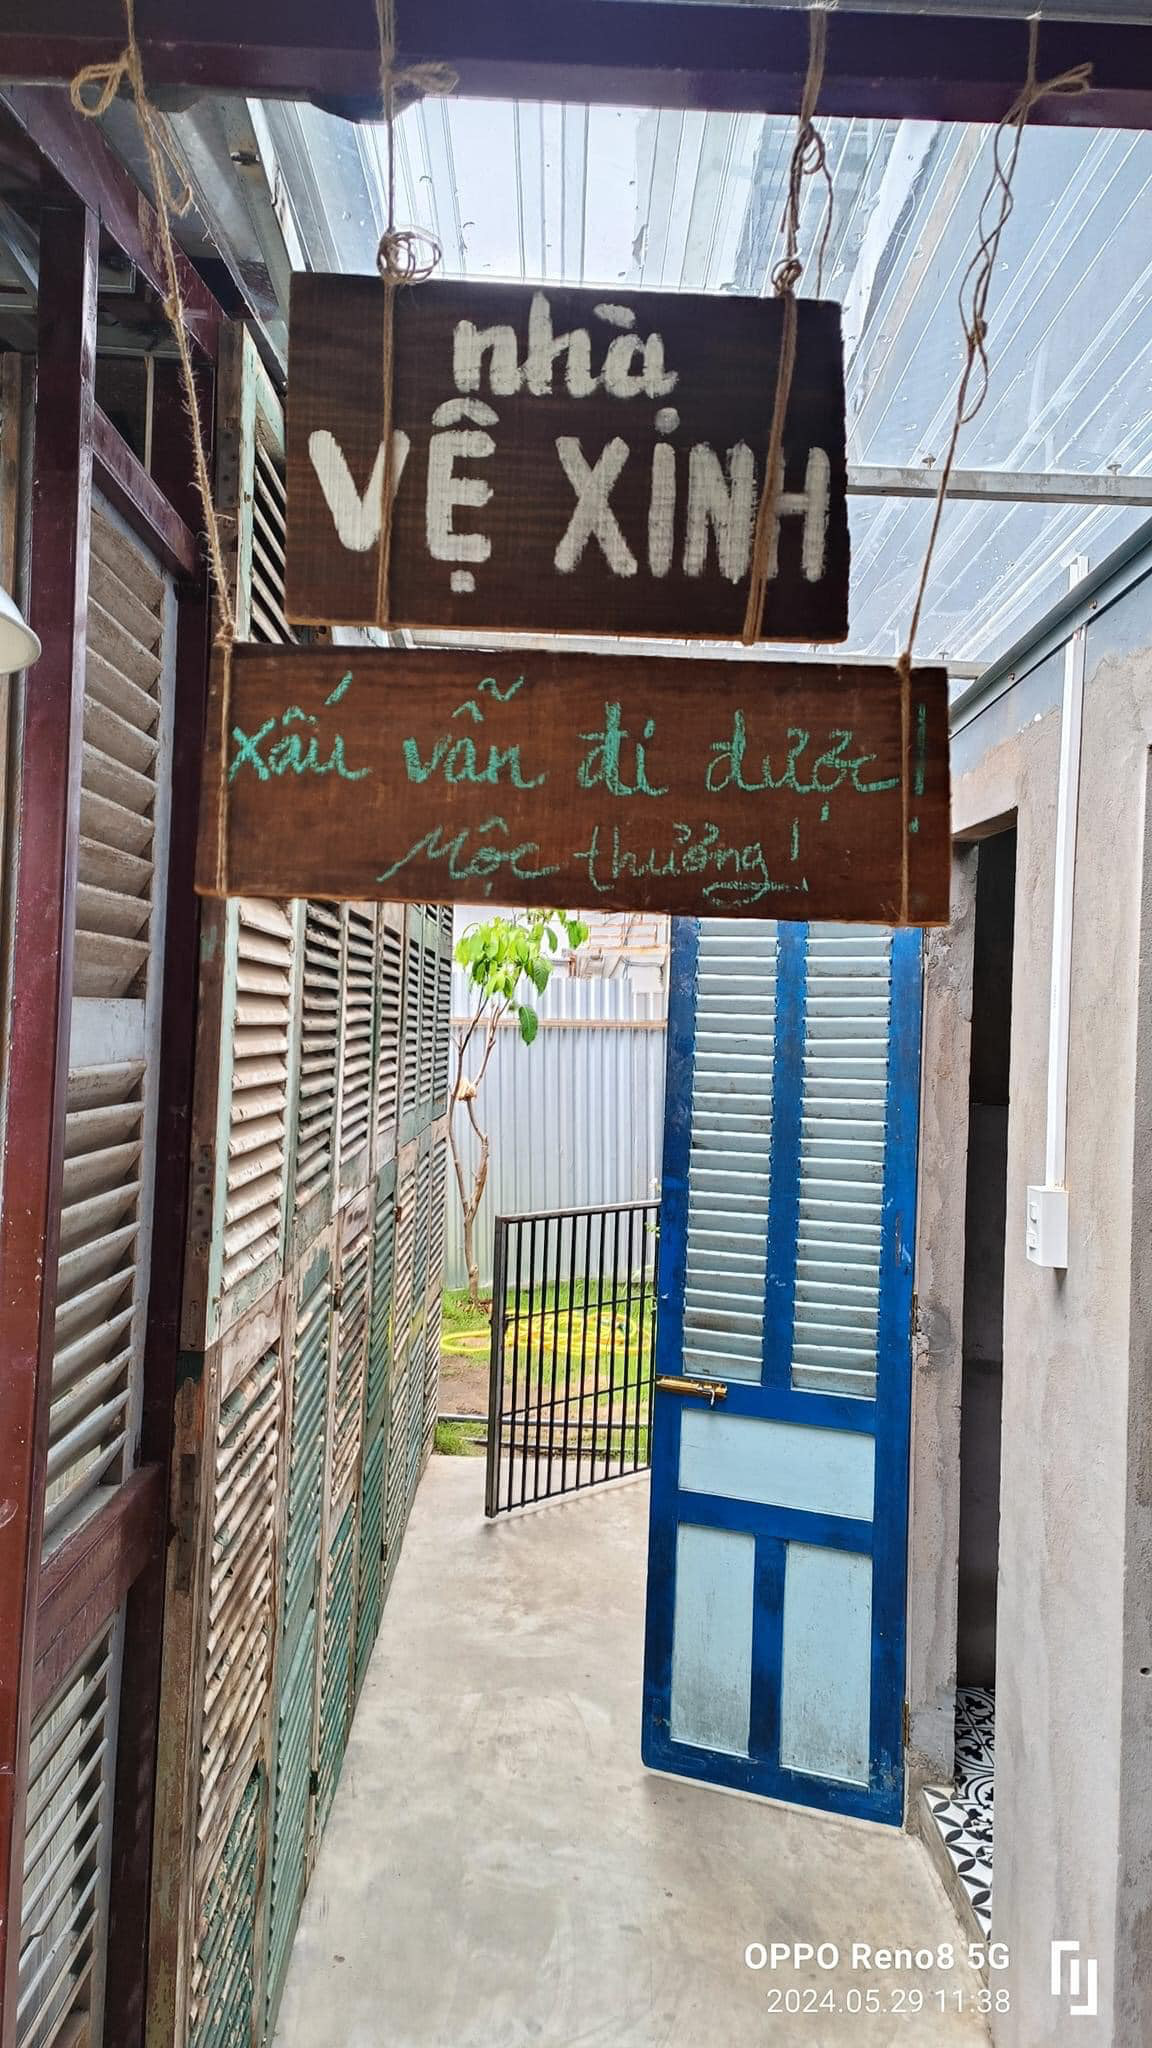 nhà
VỆ XiNH
Xấu vẫn đi được!
Mộc thưởng!
OPPO Reno8 5G
2024.05.29 11:38